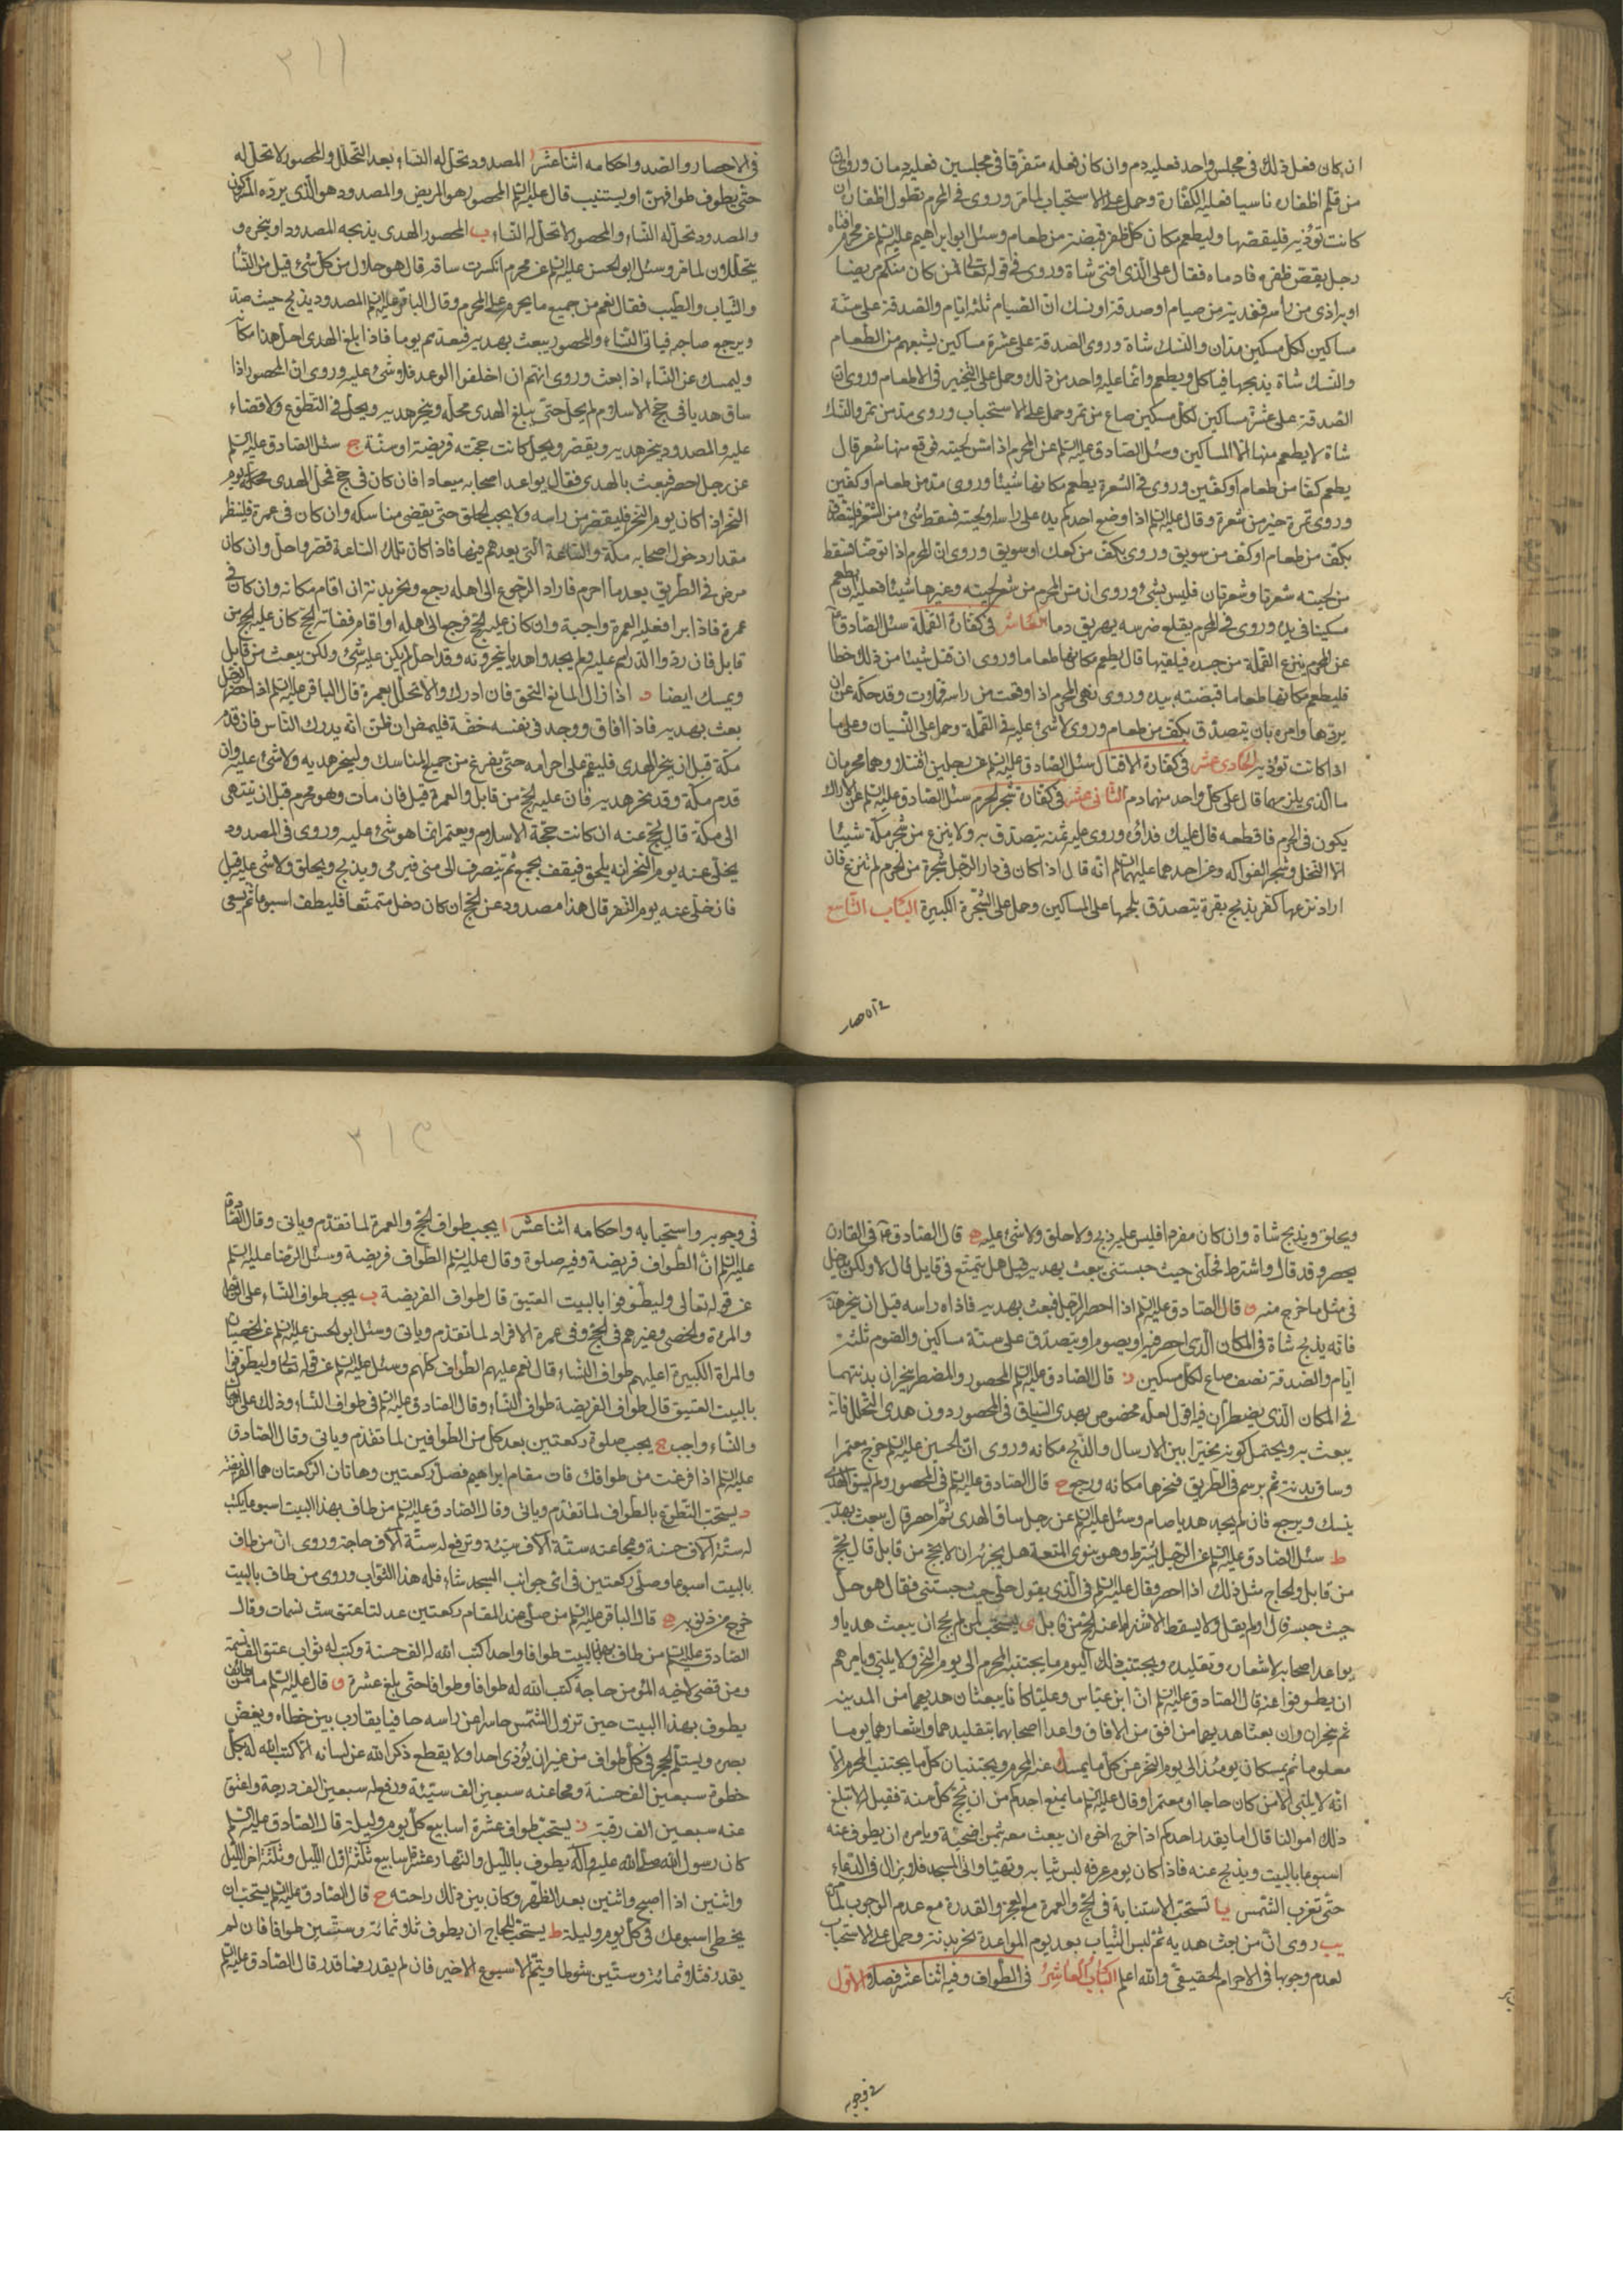 ان كان فعل ذلك فى مجلس واحد فعليه دم وان كان فعله متفرقا فى مجلسين فعليه دمان وروى ان
من قلم اظفاره ناسيا فعليه الكفارة وحمل على الاستحباب لما مر وروى فى المحرم تطول اظفاره ان
كانت تؤذيه فليقصها وليطعم مكان كل ظفر قبضة من طعام وسئل ابو ابراهيم عليه السلم عن محرم افتاه
رجل بقص ظفره فادماه فقال على الذى افتى شاة وروى فى قوله تعالى فمن كان منكم مريضا
او به اذى من راسه ففدية من صيام او صدقة او نسك ان الصيام ثلثة ايام والصدقة على ستة
مساكين لكل مسكين مدان والنسك شاة وروى الصدقة على عشرة مساكين يشبعهم من الطعام
والنسك شاة يذبحها فياكل ويطعم وانما عليه واحد من ذلك وحمل على التخيير فى الاطعام وروى ان
الصدقة على عشرة مساكين لكل مسكين صاع من تمر وحمل على الاستحباب وروى مد من تمر والنسك
شاة لا يطعم منها الا المساكين وسئل الصادق عليه السلم عن المحرم اذا مس لحيته فوقع منها شعر قال
يطعم كفا من طعام او كفين وروى فى الشعرة يطعم مكانها شيئا وروى مد من طعام او كفين
وروى تمرة خير من شعرة وقال عليه السلم اذا وضع احدكم يده على راسه او لحيته فسقط شىء من الشعر فليتصدق
بكف من طعام او كف من سويق وروى بكف من كعك او سويق وروى ان المحرم اذا توضا فسقط
من لحيته شعرة او شعرتان فليس بشىء وروى ان مس المحرم من شعر لحيته وغيرها شيئا فعليه ان يطعم
مسكينا فى يده وروى فى المحرم يقلع ضرسه يهريق دما العاشر فى كفارة القملة سئل الصادق ع
عن المحرم ينزع القملة من جسده فيلقيها قال يطعم مكانها طعاما وروى ان قتل شيئا من ذلك خطا
فليطعم مكانها طعاما قبضة بيده وروى نهى المحرم اذا وقعت من راسه قملة وقد حكه عن ان
يردها وامره بان يتصدق بكف من طعام وروى لا شىء عليه فى القملة وحمل على النسيان وعلى ما
اذا كانت تؤذيه الحادى عشر فى كفارة الاقتتال سئل الصادق عليه السلم عن رجلين اقتتلا وهما محرمان
ما الذى يلزمهما قال على كل واحد منهما دم الثانى عشر فى كفارة شجر الحرم سئل الصادق عليه السلم عن الاراك
يكون فى الحرم فاقطعه قال عليك فداؤه وروى عليه ثمنه يتصدق به ولا ينزع من شجر مكة شيئا
الا النخل وشجر الفواكه وعن احدهما عليهما السلم انه قال اذا كان فى دار الرجل شجرة من الحرم لم تنزع فان
اراد نزعها كفر بذبح بقرة يتصدق بلحمها على المساكين وحمل على الشجرة الكبيرة الباب التاسع
فى الاحصار والصد واحكامه اثنا عشر ا المصدود تحل له النساء بعد التحلل والمحصور لا تحل له
حتى يطوف طوافهن او يستنيب قال عليه السلم المحصور هو المريض والمصدود هو الذى يرده المشركون
والمصدود تحل له النساء والمحصور لا تحل له النساء ب المحصور الهدى يذبحه المصدود او ينحره و
يتحللون لما مر وسئل ابو الحسن عليه السلم عن محرم انكسرت ساقه قال هو حلال من كل شىء قيل من النساء
والثياب والطيب فقال نعم من جميع ما يحرم على المحرم وقال الباقر عليه السلم المصدود يذبح حيث صد
ويرجع صاحبه فياتى النساء والمحصور يبعث بهديه فيعدهم يوما فاذا بلغ الهدى احل هذا مكانه
وليمسك عن النساء اذا بعث وروى انهم ان اخلفوا الوعد فلا شىء عليه وروى ان المحصور اذا
ساق هديا فى حج الاسلام لم يحل حتى يبلغ الهدى محله وينحر هديه ويحل فى التطوع ولا قضاء
عليه والمصدود ينحر هديه ويقصر ويحل كانت حجته فريضة او سنة ج سئل الصادق عليه السلم
عن رجل احصر فبعث بالهدى فقال يواعد اصحابه ميعادا فان كان فى حج فمحل الهدى يوم
النحر اذا كان يوم النحر فليقصر من راسه ولا يجب الحلق حتى يقضى مناسكه وان كان فى عمرة فلينظر
مقدار دخول اصحابه مكة والساعة التى يعدهم فيها فاذا كان تلك الساعة قصر واحل وان كان
مرض فى الطريق بعد ما احرم فاراد الرجوع الى اهله رجع ونحر بدنة ان اقام مكانه وان كان فى
عمرة فاذا برا فعليه العمرة واجبة وان كان عليه الحج فرجع الى اهله او اقام ففاته الحج كان عليه الحج من
قابل فان ردوا الدراهم عليه ولم يجدوا هديا ينحرونه وقد احل لم يكن عليه شىء ولكن يبعث من قابل
ويمسك ايضا د اذا زال المانع التحق فان ادرك والا تحلل بعمرة قال الباقر عليه السلم اذا احصر الرجل
بعث بهديه فاذا افاق ووجد فى نفسه خفة فليمض ان ظن انه يدرك الناس فان قدم
مكة قبل ان ينحر الهدى فليقم على احرامه حتى يفرغ من جميع المناسك ولينحر هديه ولا شىء عليه وان
قدم مكة وقد نحر هديه فان عليه الحج من قابل والعمرة قيل فان مات وهو محرم قبل ان ينتهى
الى مكة قال يحج عنه ان كانت حجة الاسلام ويعتمر انما هو شىء عليه وروى فى المصدود
يخلى عنه يوم النحر انه يلحق فيقف بجمع ثم ينصرف الى منى فيرمى ويذبح ويحلق ولا شىء عليه قيل
فان خلى عنه يوم النفر قال هذا مصدود عن الحج ان كان دخل متمتعا فليطف اسبوعا ثم يسعى
ويحلق ويذبح شاة وان كان مفردا فليس عليه ذبح ولا حلق ولا شىء عليه ه قال الصادق ع فى القارن
يحصر وقد قال واشترط فحلنى حيث حبستنى يبعث بهديه قيل هل يتمتع فى قابل قال لا ولكن يدخل
فى مثل ما خرج منه و قال الصادق عليه السلم اذا احصر الرجل فبعث بهديه فاذاه راسه قبل ان ينحر هديه
فانه يذبح شاة فى المكان الذى احصر فيه او يصوم او يتصدق على ستة مساكين والصوم ثلثة
ايام والصدقة نصف صاع لكل مسكين ز قال الصادق عليه السلم المحصور والمضطر ينحران بدنتهما
فى المكان الذى يضطران فيه اقول لعله مخصوص بهدى السياق فى المحصور دون هدى التحلل فانه
يبعث به ويحتمل كونه مخيرا بين الارسال والذبح مكانه وروى ان الحسين عليه السلم خرج معتمرا
وساق بدنة ثم برسم فى الطريق فنحرها مكانه ورجع ح قال الصادق عليه السلم فى المحصور ولم يسق الهدى
ينسك ويرجع فان لم يجد هديا صام وسئل عليه السلم عن رجل ساق الهدى ثم احصر قال يبعث بهديه
ط سئل الصادق عليه السلم عن الرجل يشترط وهو ينوى المتعة هل يجزيه ان لا يحج من قابل قال يحج
من قابل والحاج مثل ذلك اذا احصر وقال عليه السلم فى الذى يقول حلنى حيث حبستنى فقال هو حل
حيث حبسه قال او لم يقل ولا يسقط الاشتراط عنه الحج من قابل ى يستحب لمن لم يحج ان يبعث هديا و
يواعد اصحابه لاشعاره وتقليده ويجتنب ذلك اليوم ما يجتنبه المحرم الى يوم النحر ولا يلبى ويامرهم
ان يطوفوا عنه قال الصادق عليه السلم ان ابن عباس وعليا كانا يبعثان هديهما من المدينة
ثم ينحران وان بعثا هديهما من افق من الافاق واعدا اصحابهما بتقليدهما واشعارهما يوما
معلوما ثم يمسكان يومئذ الى يوم النحر عن كل ما يمسك عنه المحرم ويجتنبان كل ما يجتنب المحرم الا
انه لا يلبى الا من كان حاجا او معتمرا وقال عليه السلم ما يمنع احدكم من ان يحج كل سنة فقيل لا تبلغ
ذلك اموالنا قال اما يقدر احدكم اذا خرج اخوه ان يبعث معه بثمن اضحية ويامره ان يطوف عنه
اسبوعا بالبيت ويذبح عنه فاذا كان يوم عرفة لبس ثيابه وتهيا واتى المسجد فلا يزال فى الدعاء
حتى تغرب الشمس يا تستحب الاستنابة فى الحج والعمرة مع العجز والقدرة مع عدم الوجوب لما مر
يب روى ان من بعث هديه ثم لبس الثياب بعد يوم المواعدة نحر بدنة وحمل على الاستحباب
لعدم وجوبها فى الاحرام الحقيقى والله اعلم الباب العاشر فى الطواف وفيه اثنا عشر فصلا الاول
فى وجوبه واستحبابه واحكامه اثنا عشر ا يجب طواف الحج والعمرة لما تقدم وياتى وقال الصادق
عليه السلم ان الطواف فريضة وفيه صلوة وقال عليه السلم الطواف فريضة وسئل الرضا عليه السلم
عن قوله تعالى وليطوفوا بالبيت العتيق قال طواف الفريضة ب يجب طواف النساء على الرجل
والمرءة والخصى وغيرهم فى الحج وفى عمرة الافراد لما تقدم وياتى وسئل ابو الحسن عليه السلم عن الخصيان
والمراة الكبيرة اعليهم طواف النساء قال نعم عليهم الطواف كلهم وسئل عليه السلم عن قوله تعالى وليطوفوا
بالبيت العتيق قال طواف الفريضة طواف النساء وقال الصادق عليه السلم فى طواف النساء وذلك على الرجال
والنساء واجب ج يجب صلوة ركعتين بعد كل من الطوافين لما تقدم وياتى وقال الصادق
عليه السلم اذا فرغت من طوافك فات مقام ابراهيم فصل ركعتين وهاتان الركعتان هما الفريضة
د يستحب التطوع بالطواف لما تقدم وياتى وقال الصادق عليه السلم من طاف بهذا البيت اسبوعا يكتب
له ستة الاف حسنة ومحا عنه ستة الاف سيئة وترفع له ستة الاف حاجة وروى ان من طاف
بالبيت اسبوعا وصلى ركعتين فى اى جوانب المسجد شاء فله هذا الثواب وروى من طاف بالبيت
خرج من ذنوبه ه قال الباقر عليه السلم من صلى عند المقام ركعتين عدلتا عتق ست نسمات وقال
الصادق عليه السلم من طاف بهذا البيت طوافا واحدا كتب الله له الف حسنة وكتب له ثواب عتق الف نسمة
ومن قضى لاخيه المؤمن حاجة كتب الله له طوافا وطوافا حتى بلغ عشرة و قال عليه السلم ما من طائف
يطوف بهذا البيت حين تزول الشمس حاسرا عن راسه حافيا يقارب بين خطاه ويغض
بصره ويستلم الحجر فى كل طواف من غير ان يؤذى احدا ولا يقطع ذكر الله عن لسانه الا كتب الله له بكل
خطوة سبعين الف حسنة ومحا عنه سبعين الف سيئة ورفع له سبعين الف درجة واعتق
عنه سبعين الف رقبة ز يستحب طواف عشرة اسابيع كل يوم وليلة قال الصادق عليه السلم
كان رسول الله صلى الله عليه وآله يطوف بالليل والنهار عشرة اسابيع ثلثة اول الليل وثلثة اخر الليل
واثنين اذا اصبح واثنين بعد الظهر وكان بين ذلك راحته ح قال الصادق عليه السلم يستحب ان
يحصى اسبوعك فى كل يوم وليلة ط يستحب للحاج ان يطوف ثلاثمائة وستين طوافا فان لم
يقدر فثلاثمائة وستين شوطا ويتم الاسبوع الاخير فان لم يقدر فما قدر قال الصادق عليه السلم